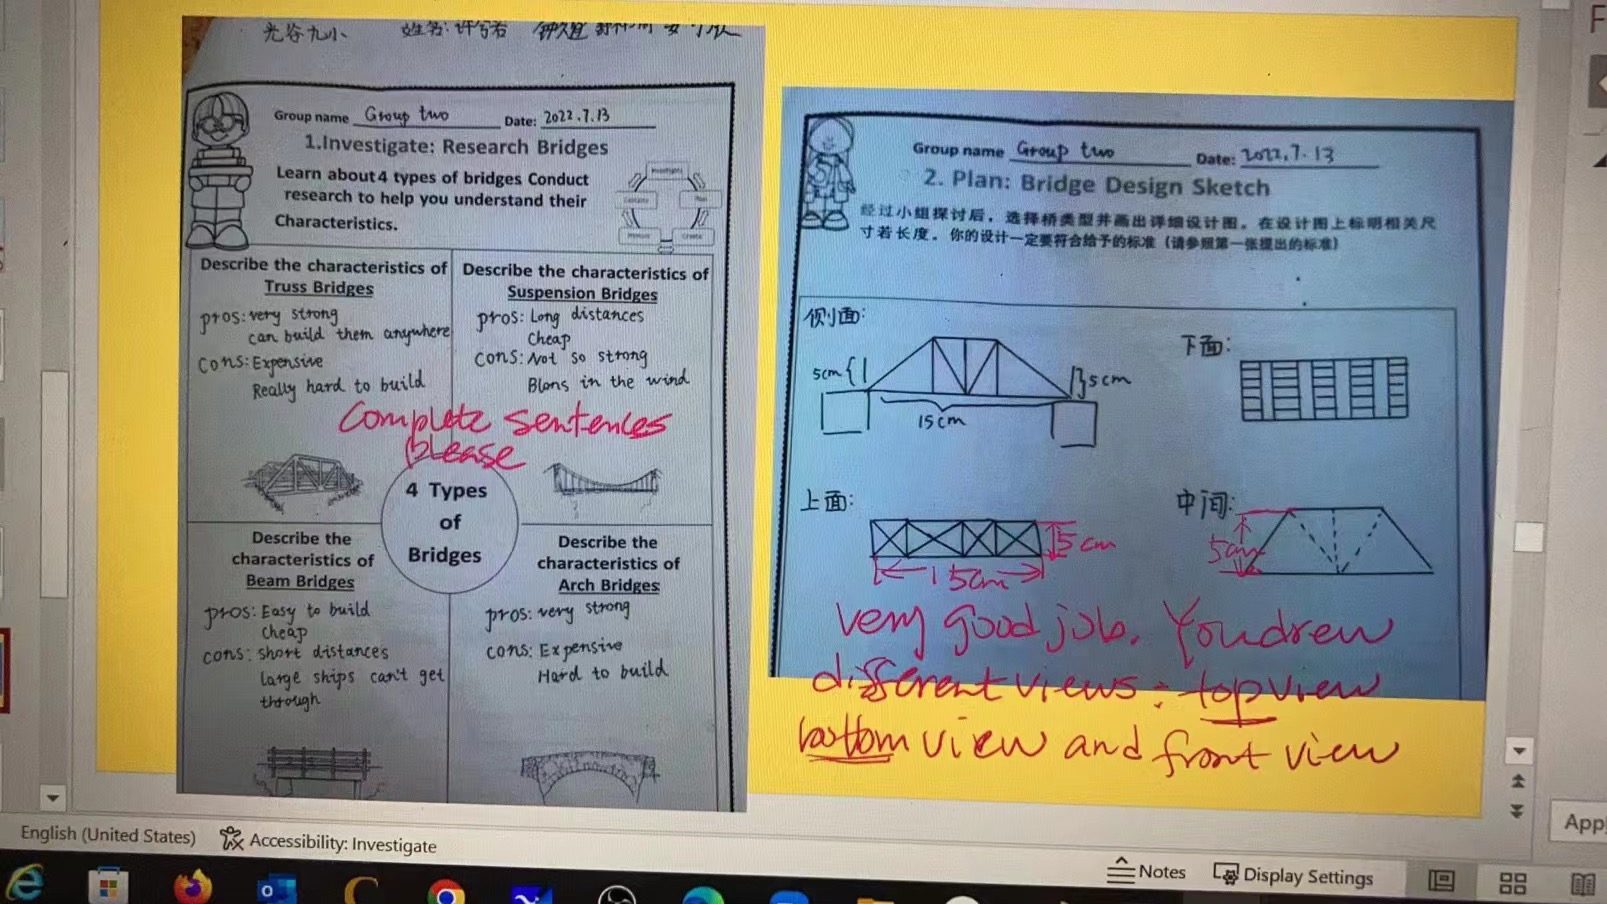 光谷九小 姓名: 许
Group name Group two Date: 2022.7.13
1.Investigate: Research Bridges
Learn about 4 types of bridges Conduct
research to help you understand their
Characteristics.
Plan
Create
Describe the characteristics of
Truss Bridges
pros: very strong
can build them anywhere
cons: Expensive
Really hard to build
Describe the characteristics of
Suspension Bridges
pros: Long distances
Cheap
cons: Not so strong
Blons in the wind
Complete sentences
please
4 Types
of
Bridges
Describe the
characteristics of
Beam Bridges
pros: Easy to build
cheap
cons: short distances
large ships can't get
through
Describe the
characteristics of
Arch Bridges
pros: very strong
cons: Expensive
Hard to build
Group name Group two Date: 2022.7.13
2. Plan: Bridge Design Sketch
经过小组探讨后，选择桥类型并画出详细设计图。在设计图上标明相关尺
寸若长度。你的设计一定要符合给予的标准（请参照第一张提出的标准）
侧面:
5cm
5cm
15cm
下面:
上面:
5cm
15cm
中间:
5cm
very good job. You drew
different views: top view
bottom view and front view
English (United States) Accessibility: Investigate
Notes Display Settings